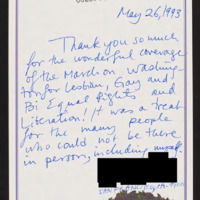 May 26, 1993
Thank you so much
for the wonderful coverage
of the March on Washing
ton for Lesbian, Gay and
Bi Equal Rights and
Liberation. It was a treat
for the many people
who could not be there
in person, including myself.